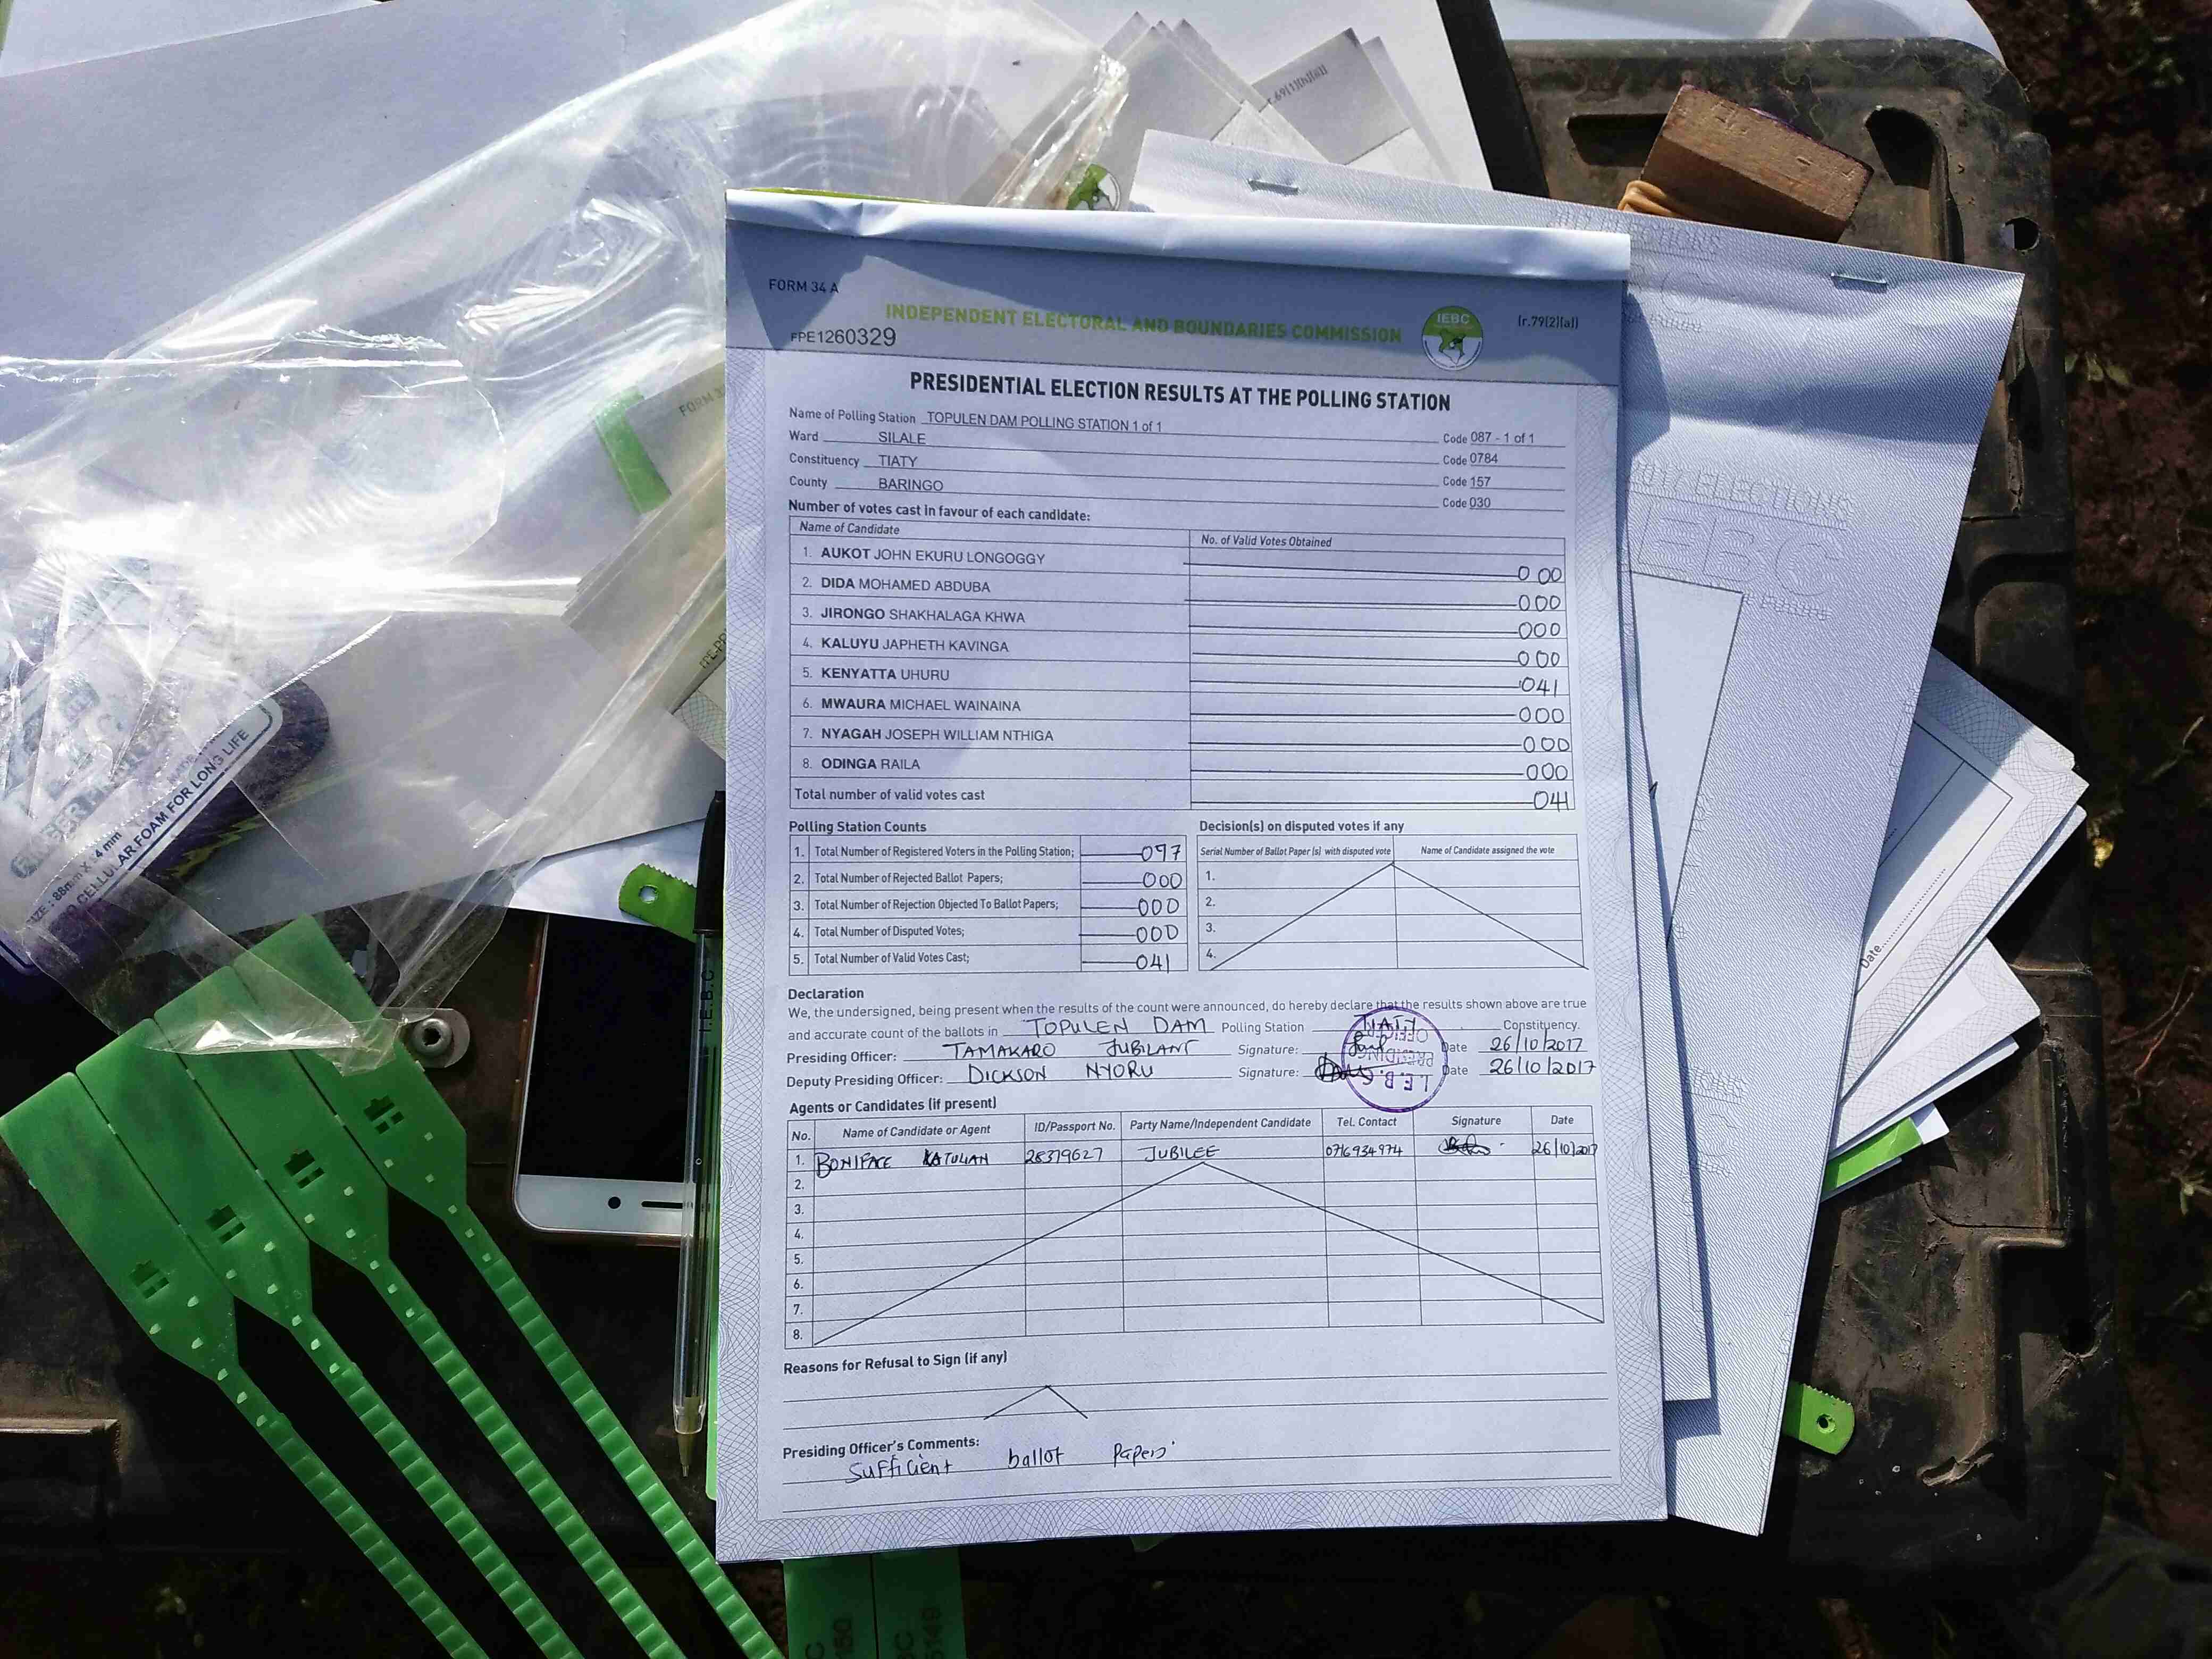 r.69(1)(h)(ii)
FORM 34 A
INDEPENDENT ELECTORAL AND BOUNDARIES COMMISSION
IEBC
(r.79(2)(a))
FPE1260329
PRESIDENTIAL ELECTION RESULTS AT THE POLLING STATION
Name of Polling Station TOPULEN DAM POLLING STATION 1 of 1 Code 087 - 1 of 1
Ward SILALE Code 0784
Constituency TIATY Code 157
County BARINGO Code 030
Number of votes cast in favour of each candidate:
Name of Candidate No. of Valid Votes Obtained
1. AUKOT JOHN EKURU LONGOGGY 000
2. DIDA MOHAMED ABDUBA 000
3. JIRONGO SHAKHALAGA KHWA 000
4. KALUYU JAPHETH KAVINGA 000
5. KENYATTA UHURU 041
6. MWAURA MICHAEL WAINAINA 000
7. NYAGAH JOSEPH WILLIAM NTHIGA 000
8. ODINGA RAILA 000
Total number of valid votes cast 041
Polling Station Counts
1. Total Number of Registered Voters in the Polling Station; 097
2. Total Number of Rejected Ballot Papers; 000
3. Total Number of Rejection Objected To Ballot Papers; 000
4. Total Number of Disputed Votes; 000
5. Total Number of Valid Votes Cast; 041
Decision(s) on disputed votes if any
Serial Number of Ballot Paper (s) with disputed vote Name of Candidate assigned the vote
1.
2.
3.
4.
Declaration
We, the undersigned, being present when the results of the count were announced, do hereby declare that the results shown above are true
and accurate count of the ballots in TOPULEN DAM Polling Station TIATY Constituency.
Presiding Officer: TAMAKARO JUBILANT Signature: Date 26/10/2017
Deputy Presiding Officer: DICKSON NYORU Signature: Date 26/10/2017
I.E.B.C
PRESIDING
OFFICER
Agents or Candidates (if present)
No. Name of Candidate or Agent ID/Passport No. Party Name/Independent Candidate Tel. Contact Signature Date
1. BONIFACE KATULIAN 28379627 JUBILEE 0716934974 26/10/2017
2.
3.
4.
5.
6.
7.
8.
Reasons for Refusal to Sign (if any)
Presiding Officer's Comments:
Sufficient ballot Papers
2017 ELECTIONS
IEBC
Date
I.E.B.C
FORM 3
SIZE : 88mm X 4 mm
CELLULAR FOAM FOR LONG LIFE